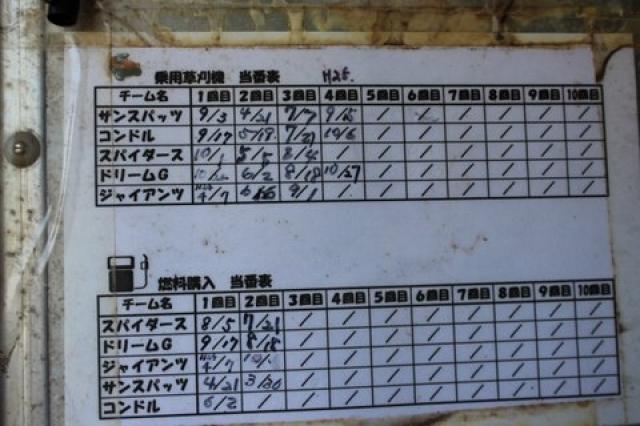 乗用草刈機 当番表 H25.
チーム名 1回目 2回目 3回目 4回目 5回目 6回目 7回目 8回目 9回目 10回目
サンスパッツ 9/3 4/21 7/7 9/15 / / / / / /
コンドル 9/17 5/19 7/21 10/6 / / / / / /
スパイダース 10/1 5/5 8/4 / / / / / / /
ドリームG 6/2 8/18 10/27 / / / / / /
ジャイアンツ 4/7 9/1 / / / / / / /
燃料購入 当番表
チーム名 1回目 2回目 3回目 4回目 5回目 6回目 7回目 8回目 9回目 10回目
スパイダース 8/5 7/21 / / / / / / / /
ドリームG 9/17 8/18 / / / / / / / /
ジャイアンツ 4/7 / / / / / / / /
サンスパッツ 4/21 3/30 / / / / / / / /
コンドル 6/2 / / / / / / / / /